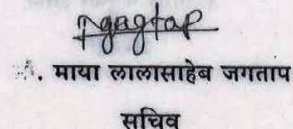 . माया लालासाहेब जगताप
सचिव